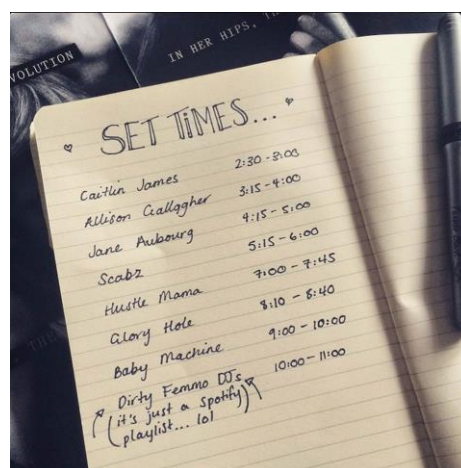 VOLUTION
IN HER HIPS, TH
SET TIMES...
Caitlin James 2:30 - 3:00
Allison Gallagher 3:15 - 4:00
Jane Aubourg 4:15 - 5:00
Scabz 5:15 - 6:00
Hustle Mama 7:00 - 7:45
Glory Hole 8:10 - 8:40
Baby Machine 9:00 - 10:00
Dirty Femmo DJs 10:00 - 11:00
(it's just a spotify
playlist... lol)
THE